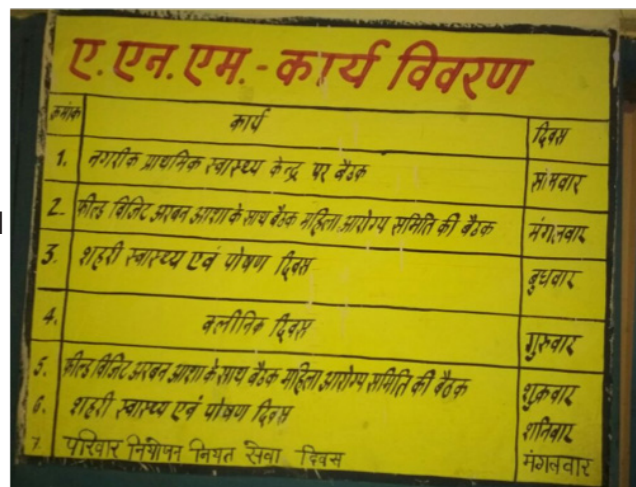 ए.एन.एम.-कार्य विवरण
क्रमांक कार्य दिवस
1. नगरीक प्राथमिक स्वास्थ्य केन्द्र पर बैठक सोमवार
2. फील्ड विजिट अरबन आशा के साथ बैठक महिला आरोग्य समिति की बैठक मंगलवार
3. शहरी स्वास्थ्य एवं पोषण दिवस बुधवार
4. क्लीनिक दिवस गुरुवार
5. फील्ड विजिट अरबन आशा के साथ बैठक महिला आरोग्य समिति की बैठक शुक्रवार
6. शहरी स्वास्थ्य एवं पोषण दिवस शनिवार
7. परिवार नियोजन नियत सेवा दिवस मंगलवार